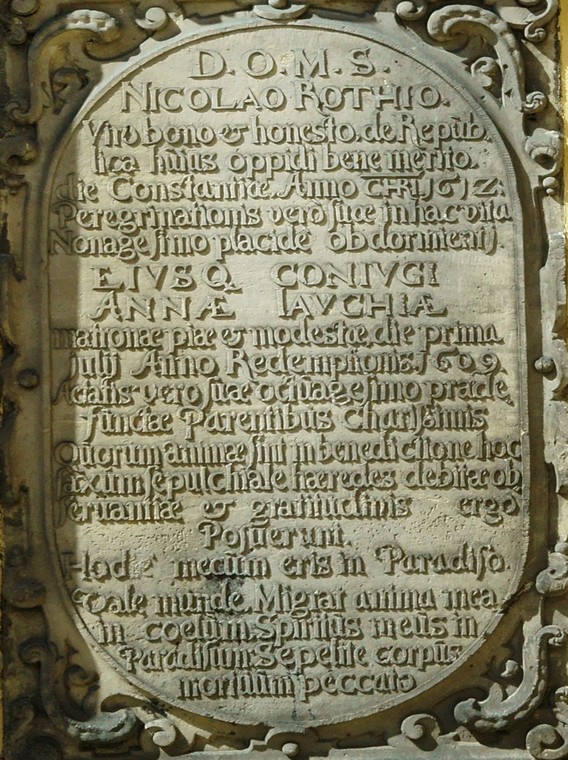 D. O. M. S.
NICOLAO ROTHIO.
Viro bono et honesto. de Repub.
lica huius oppidi bene merito.
die Constantiæ. Anno CHRI. 1612:
Peregrinationis vero suæ in hac vita
Nonagesimo placide obdormienti.
EIVSQ. CONIVGI
ANNÆ IAVCHIÆ
matronæ piæ et modestæ, die prima
julij Anno Redemptionis. 1609.
Aetatis vero suæ octuagesimo præde,
functæ Parentibus Charissimis
Quorum animæ sint in benedictione hoc
saxum sepulchrale hæredes debitæ ob
servantiæ et gratitudinis ergo
Posuerunt.
Hodie mecum eris in Paradiso.
Vale munde. Migrat anima mea
in coelum. Spiritus meus in
Paradisum. Sepelite corpus
mortuum peccato